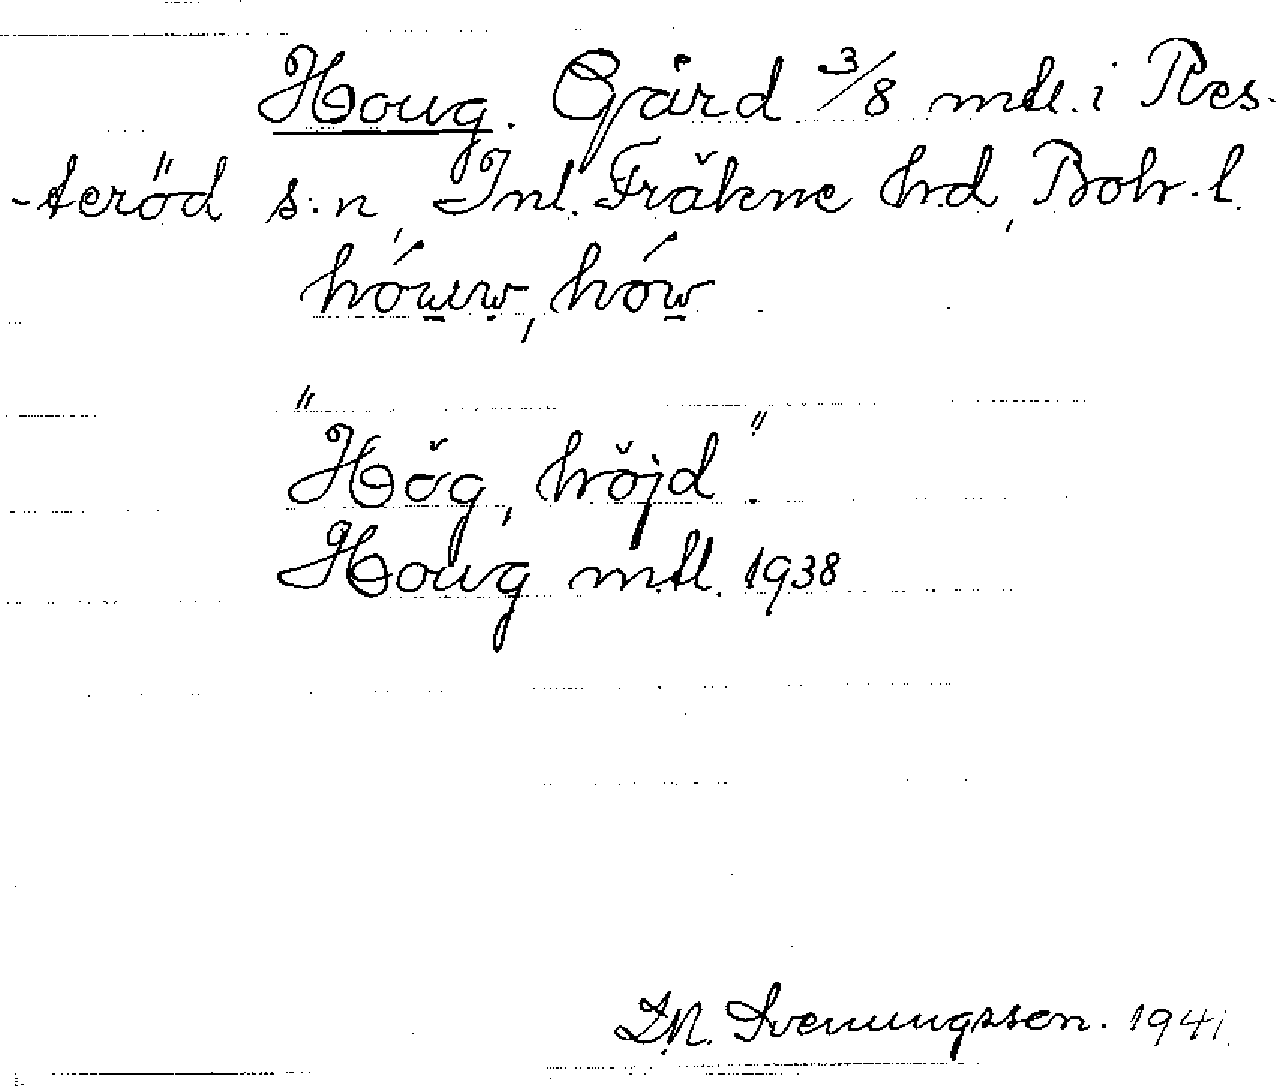 Houg. Gård 3/8 mtl. i Res-
-teröd s:n, Inl. Fräkne hd, Boh. l.
"Hög, höjd".
Houg mtl. 1938
Svenungsson. 1941